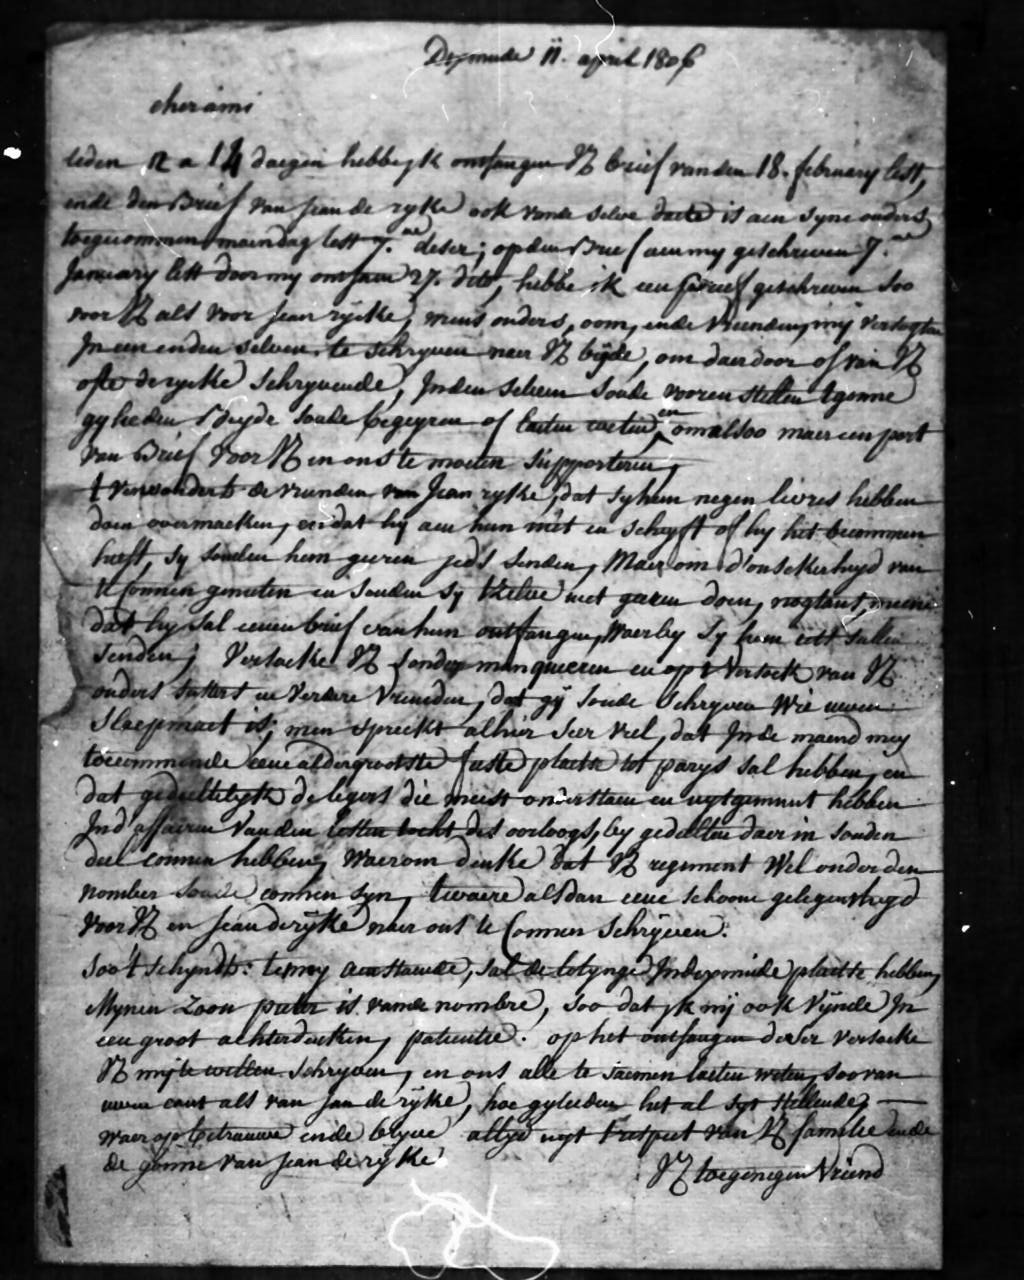 Dixmude 11. april 1806
cher ami
leden 12 a 14 daegen hebbe jk ontfangen UE brief van den 18. february lest,
ende den Brief van Jean de ryke ook vande selve date is aen syne ouders
toegecommen maendag lest 7.en deser; op den Brief aen my geschreven 7.en
January lest door my ontfaen 27. dito, hebbe ik een Brief geschreven soo
voor UE als voor Jean rycke, mens ouders, oom, ende vrienden, mij versogten
In een ende selven te schryven neer UE bijde, om daer door of van UE
ofte de rycke schryvende, Inden selven soude vooren stellen tgonne
gylieden Beyde soude begeyren of laeten weten, en om alsoo maer een port
van Brief voor UE en ons te moeten supporteren,
t verwondert de vrienden van Jean ryke, dat sy hem negen livres hebben
doen overmaeken, en dat hy aen hun niet en schryft of hy het becommen
heeft, sy souden hem geeren jeds senden, Maer om d'onsekerheyd van
t connen genieten en souden sy tselve niet geeren doen, nogtans meene
dat hy sal eenen brief van hun ontfangen, Waerby sy hem iets sullen
senden; Versoeke UE sonder manqueren en op t versoek van UE
ouders susters en verdere vrienden, dat gij soude schryven wie uwen
slaepmaet is; men spreekt alhier seer veel, dat Inde maend mey
toecommende eene aldergrootste feeste plaetse tot parys sal hebben, en
dat gedeeltelyk de legers die meest onderstaen en uytgemunt hebben
Ind'affairen van den lesten tocht des oorloogs, by gedeelten daer in souden
deel connen hebben, waerom denke dat UE regiment wel onder den
nomber soude connen syn, twaere alsdan eene schoone gelegentheyd
voor UE en Jean de rijke neer ons te connen schrijven.
soo 't schyndt: temey aenstaende, sal de lotynge In dixmude plaetse hebben,
Mynen zoon pieter is vande nombre, soo dat jk mij ook vijnde In
een groot achterdenken, patientie. op het ontfangen deser versoeke
UE mij te willen schryven, en ons alle te saemen laeten weten, soo van
uwen cant als van Jan de rijke, hoe gylieden het al syt stellende,
waer op betrauwe ende blyve altyd uyt respect van UE familie ende
de gonne van Jean de rijke
UE toegenegen Vriend